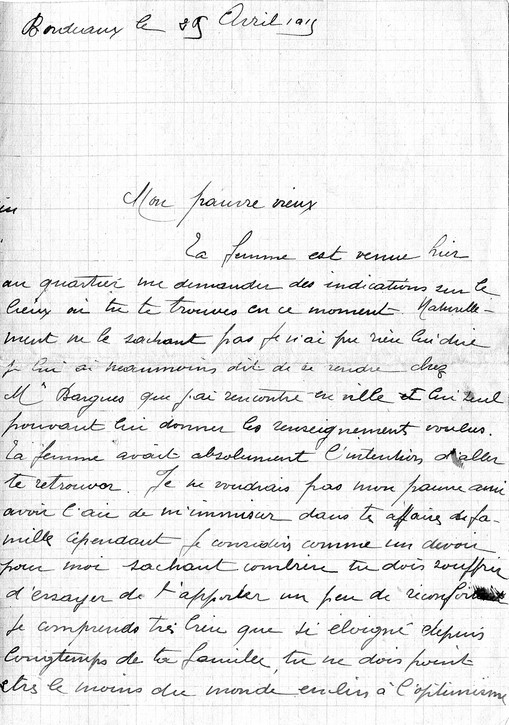 Bordeaux le 29 Avril 1915
Mon pauvre vieux
Ta femme est venue hier
au quartier me demander des indications sur le
lieux où tu te trouves en ce moment. Naturelle-
ment ne le sachant pas je n'ai pu rien lui dire
je lui ai neanmoins dit de se rendre chez
Mr Dargues que j'ai rencontré en ville et lui seul
pouvant lui donner les renseignements voulus.
Ta femme avait absolument l'intention d'aller
te retrouver. Je ne voudrais pas mon pauvre ami
avoir l'air de m'immiscer dans tes affaires de fa-
mille cependant je considère comme un devoir
pour moi sachant combien tu dois souffrir
d'essayer de t'apporter un peu de réconfort
Je comprends très bien que si éloigné depuis
longtemps de ta famille, tu ne dois point
etre le moins du monde enclin à l'optimisme